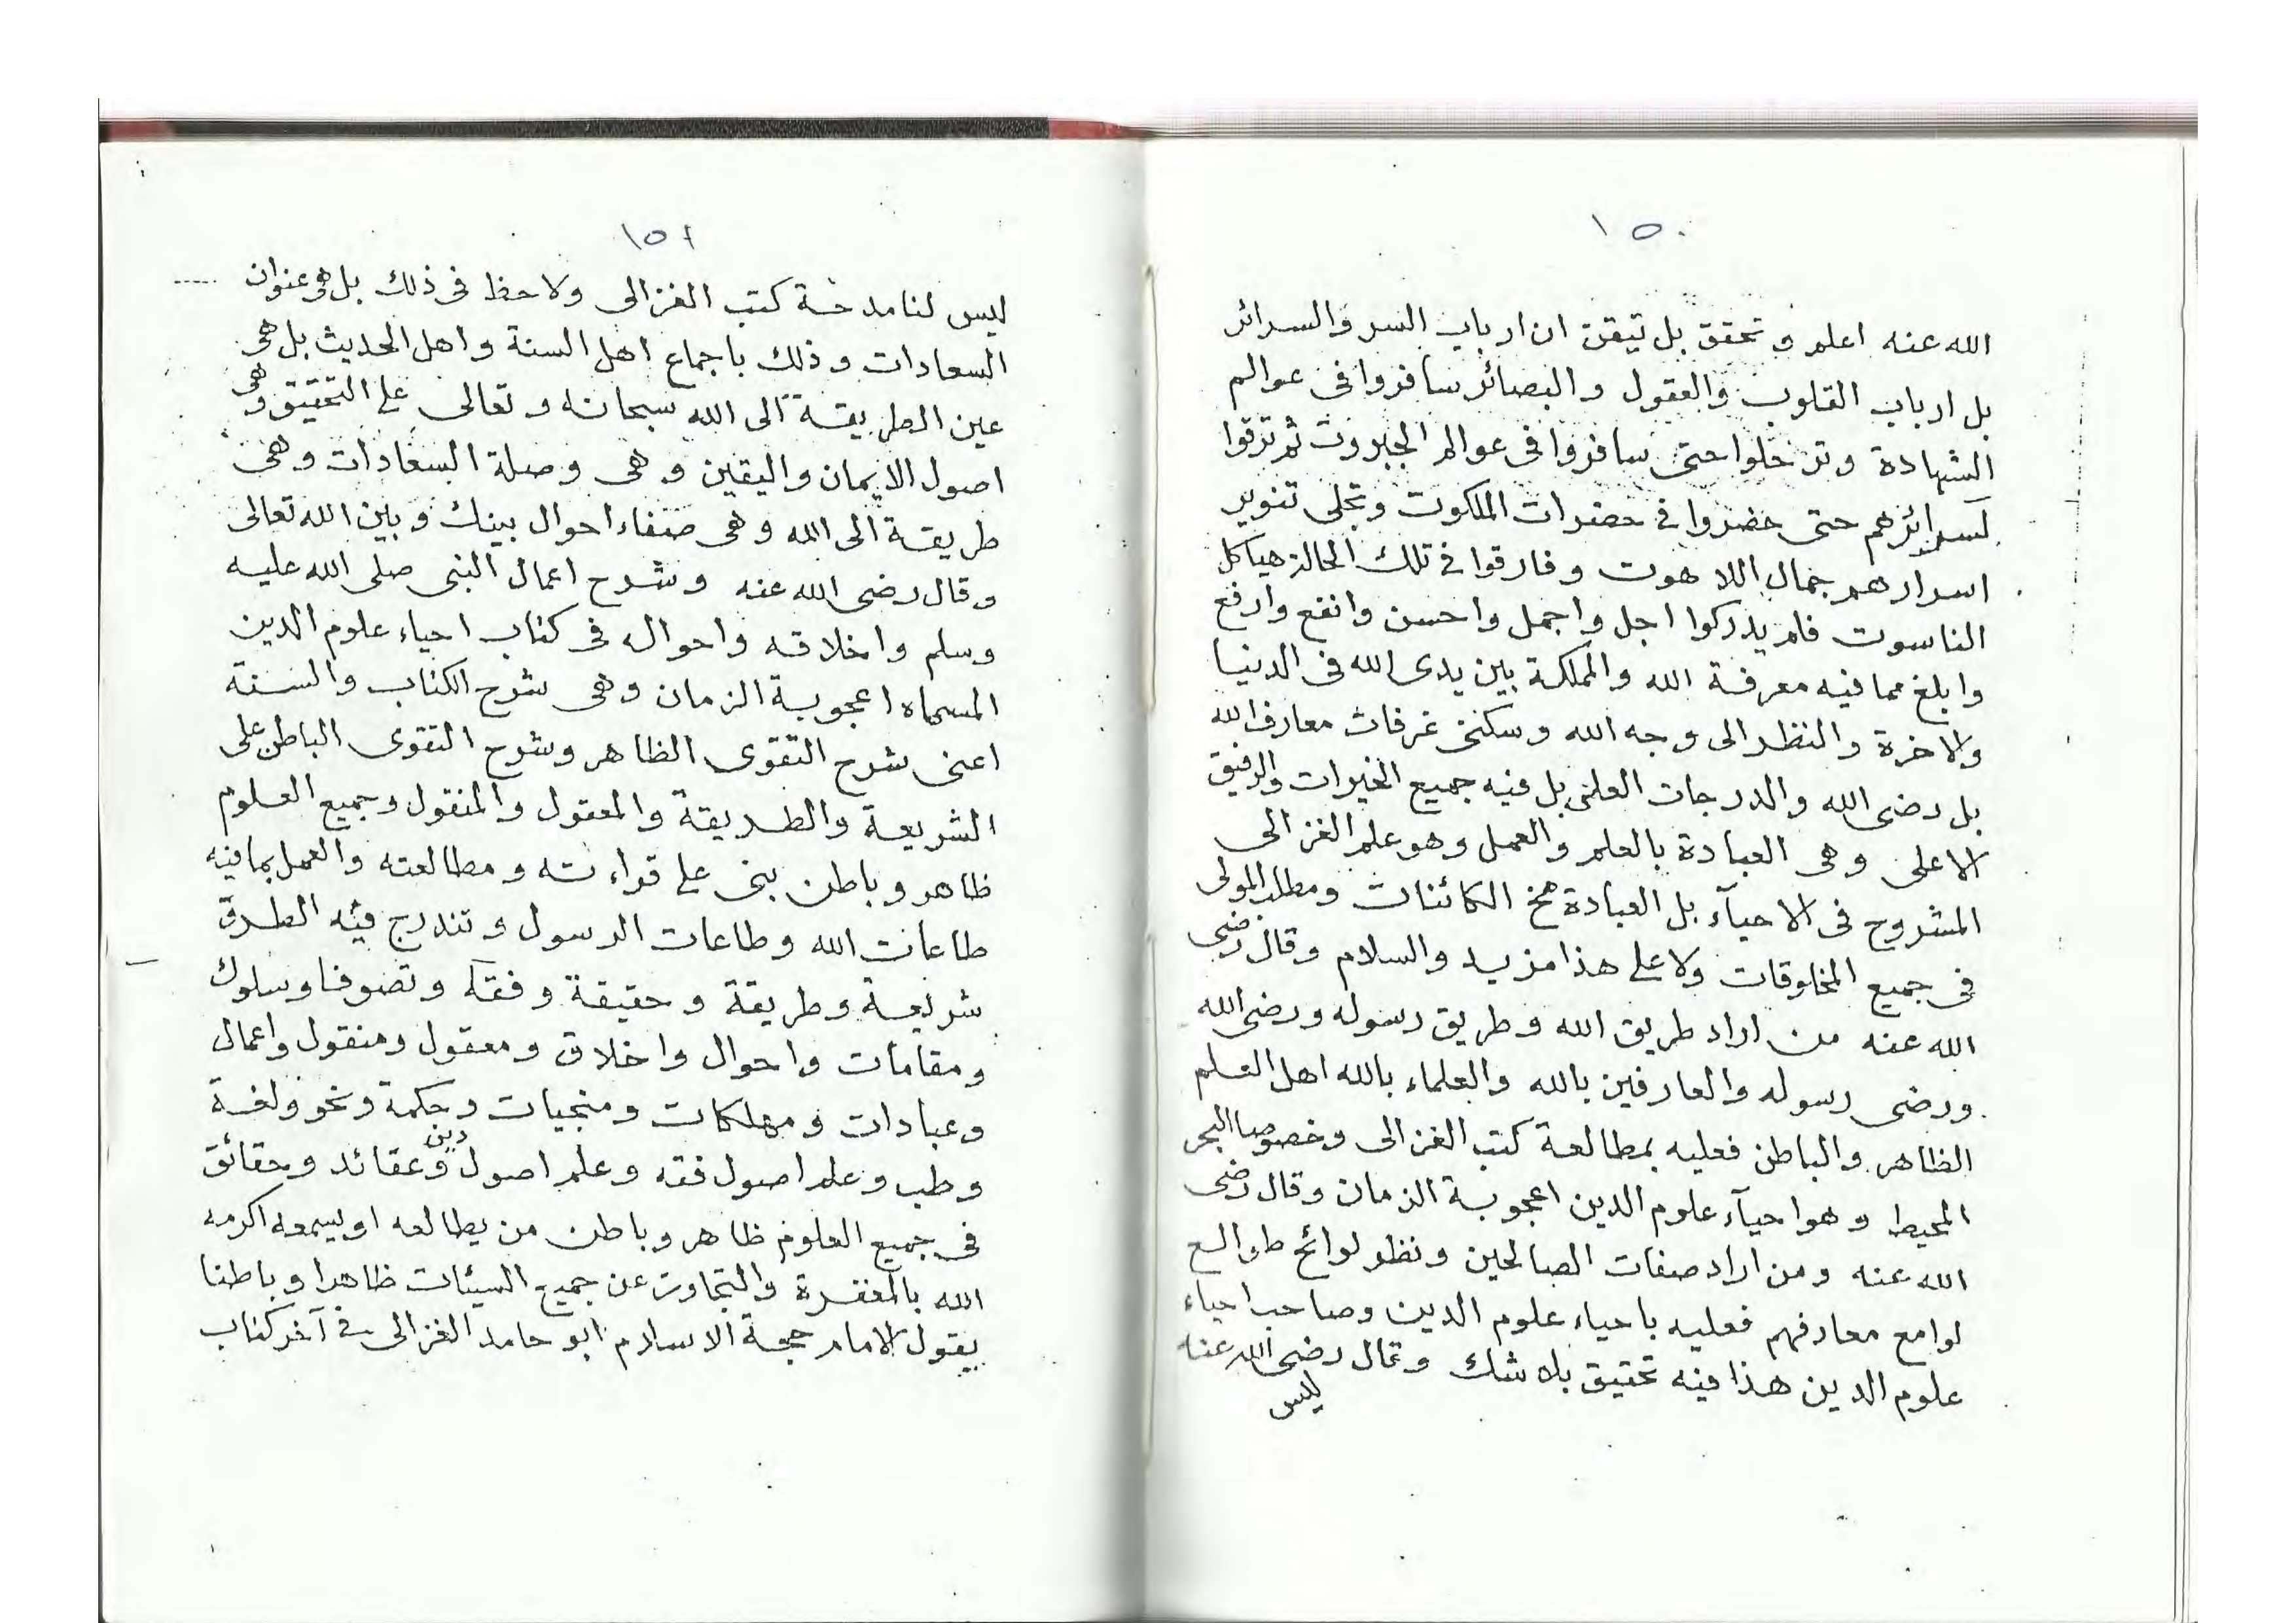 ١٥٠
الله عنه اعلم و تحقق بل تيقن ان ارباب السر والسرائر
بل ارباب القلوب والعقول والبصائر سافروا فى عوالم
الشهادة وترحلوا حتى سافروا فى عوالم الجبروت ثم ترقوا
سرائرهم حتى حضروا فى حضرات الملكوت وتجلى تنوير
اسرارهم جمال اللاهوت وفارقوا فى تلك الحالة هياكل
الناسوت فلم يدركوا اجل واجمل واحسن وانفع وارفع
وابلغ مما فيه معرفة الله والمملكة بين يدى الله فى الدنيا
والاخرة والنظر الى وجه الله وسكنى غرفات معارف الله
بل رضى الله والدرجات العلى بل فيه جميع الخيرات والرفيق
الاعلى وهى العبادة بالعلم والعمل وهو علم الغزالى
المشروح فى الاحيآء بل العبادة مخ الكائنات ومطلب المولى
فى جميع المخلوقات ولا على هذا مزيد والسلام وقال رضى
الله عنه من اراد طريق الله وطريق رسوله ورضى الله
ورضى رسوله والعارفين بالله والعلماء بالله اهل العلم
الظاهر والباطن فعليه بمطالعة كتب الغزالى وخصوصا البحر
المحيط وهو احيآء علوم الدين اعجوبة الزمان وقال رضى
الله عنه ومن اراد صفات الصالحين ونظر لوائح طوالع
لوامع معارفهم فعليه باحياء علوم الدين وصاحب احياء
علوم الدين هذا فيه تحقيق بلا شك وقال رضى الله عنه
ليس
١٥١
ليس لنا مدخة كتب الغزالى ولاحظ فى ذلك بل هو عنوان
السعادات وذلك باجماع اهل السنة واهل الحديث بل هى
عين الطريقة الى الله سبحانه وتعالى على التحقيق وهى
اصول الايمان واليقين وهى وصلة السعادات وهى
طريقة الى الله وهى صفاء احوال بينك وبين الله تعالى
وقال رضى الله عنه وشرح اعمال النبى صلى الله عليه
وسلم واخلاقه واحواله فى كتاب احياء علوم الدين
المسماه اعجوبة الزمان وهى شرح الكتاب والسنة
اعنى شرح التقوى الظاهر وشرح التقوى الباطن على
الشريعة والطريقة والمعقول والمنقول وجميع العلوم
ظاهر وباطن بنى على قراءته ومطالعته والعمل بما فيه
طاعات الله وطاعات الرسول وتندرج فيه الطرق
شريعة وطريقة وحقيقة وفقه وتصوفا وسلوك
ومقامات واحوال واخلاق ومعقول ومنقول واعمال
وعبادات ومهلكات ومنجيات وحكمة ونحو ولغة
وطب وعلم اصول فقه وعلم اصول دين وعقائد وحقائق
فى جميع العلوم ظاهر وباطن من يطالعه او يسمعه اكرمه
الله بالمغفرة والتجاوز عن جميع السيئات ظاهرا وباطنا
يقول الامام حجة الاسلام ابو حامد الغزالى فى آخر كتاب